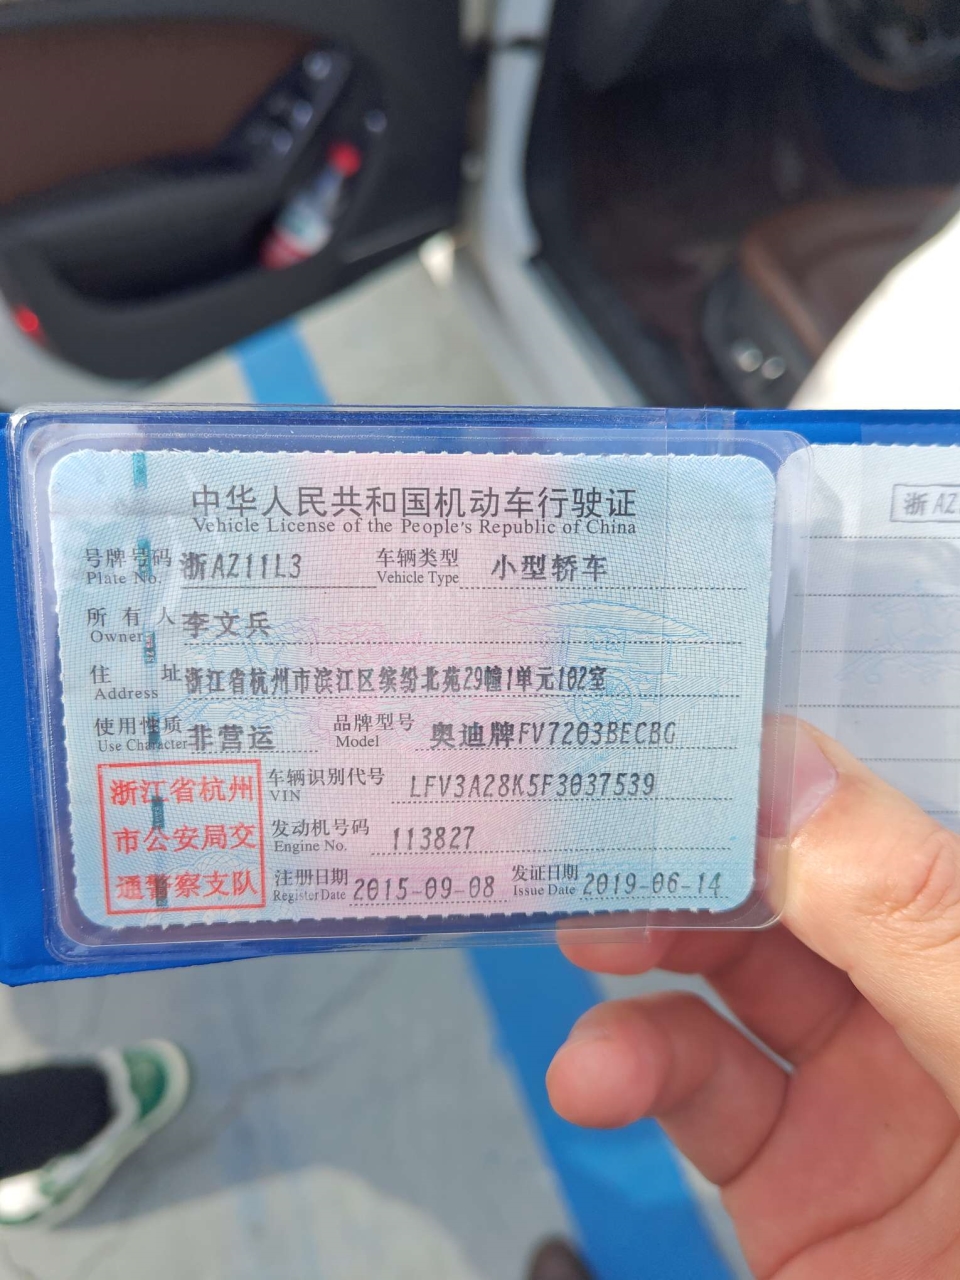 中华人民共和国机动车行驶证
Vehicle License of the People's Republic of China
号牌号码 浙AZ11L3 车辆类型 小型轿车
Plate No. Vehicle Type
所有人 李文兵
Owner
住址 浙江省杭州市滨江区缤纷北苑29幢1单元102室
Address
使用性质 非营运 品牌型号 奥迪牌FV7203BECBG
Use Character Model
车辆识别代号 LFV3A28K5F3037539
VIN
发动机号码 113827
Engine No.
注册日期 2015-09-08 发证日期 2019-06-14
Register Date Issue Date
浙江省杭州
市公安局交
通警察支队
浙AZ